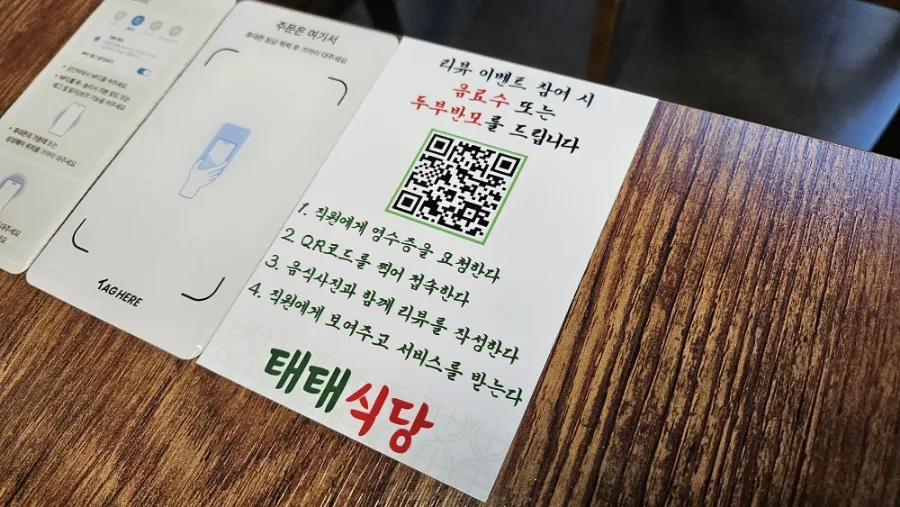 주문은 여기서
휴대폰 잠금 해제 후 가까이 대주세요
TAG HERE
리뷰 이벤트 참여 시
음료수 또는
두부반모를 드립니다
1. 직원에게 영수증을 요청한다
2. QR코드를 찍어 접속한다
3. 음식사진과 함께 리뷰를 작성한다
4. 직원에게 보여주고 서비스를 받는다
태태식당